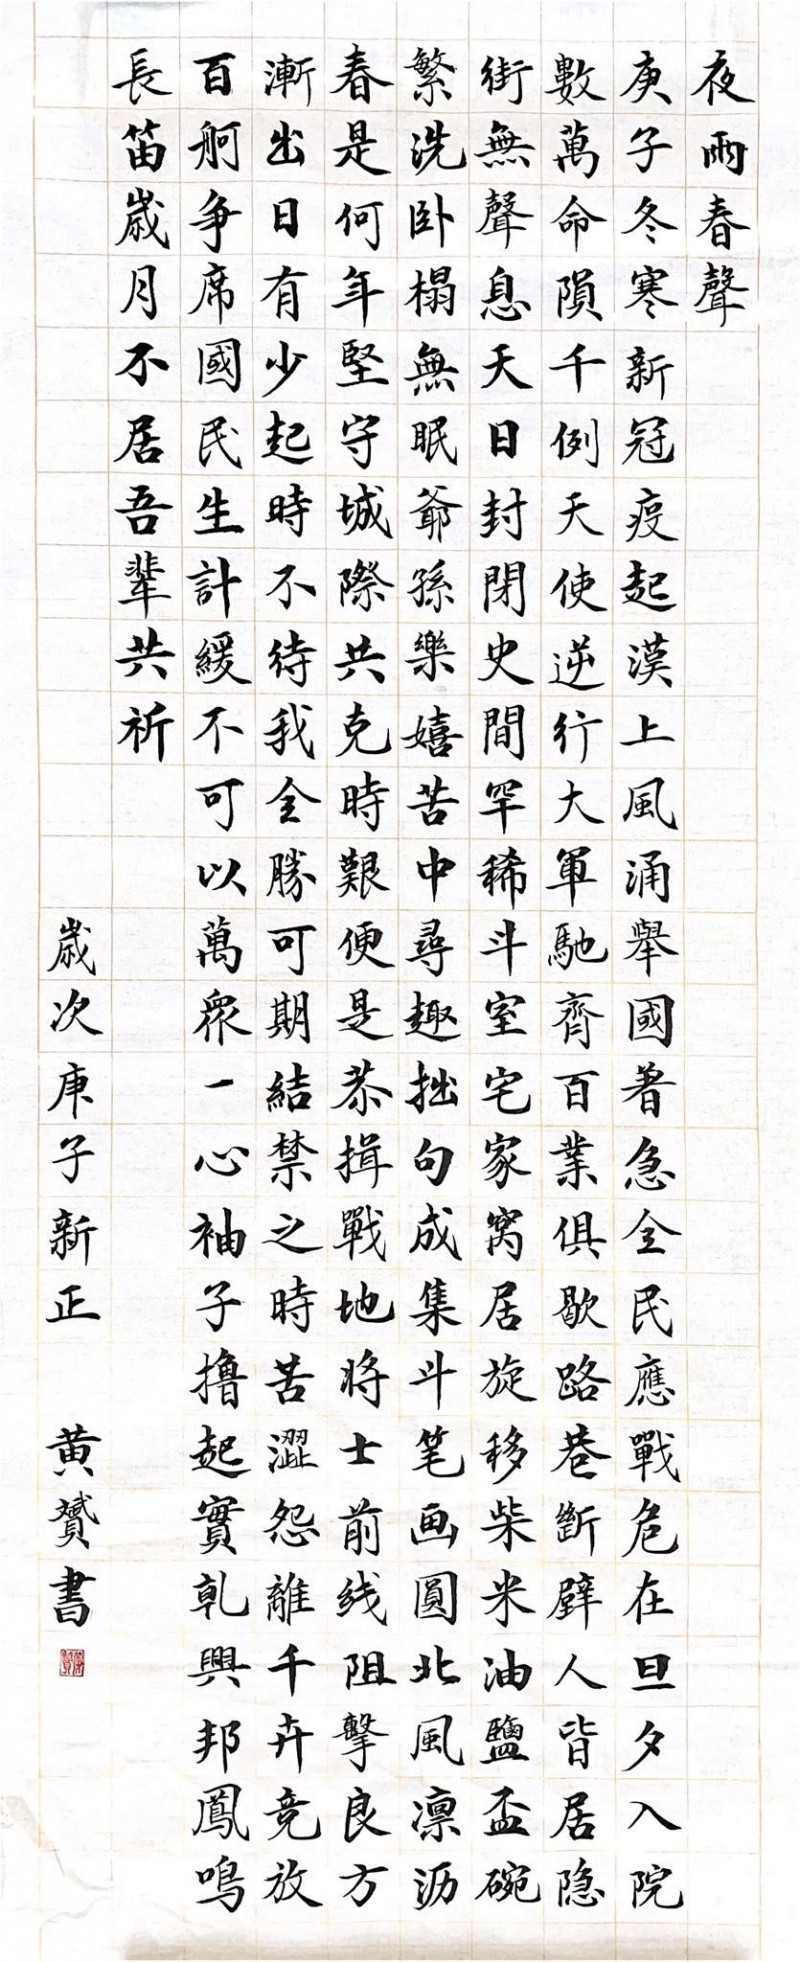 夜雨春聲
庚子冬寒新冠疫起漠上風涌舉國著急全民應戰危在旦夕入院
數萬命隕千例天使逆行大軍馳齊百業俱歇路巷斷辟人皆居隐
街無聲息天日封閉史間罕稀斗室宅家窝居旋移柴米油鹽盃碗
繁洗卧榻無眠爺孫樂嬉苦中尋趣拙句成集斗笔画圓北風凛沥
春是何年堅守城際共克時艱便是恭揖戰地將士前线阻擊良方
漸出日有少起時不待我全勝可期結禁之時苦澀怨離千卉竞放
百舸争席國民生計緩不可以萬衆一心袖子撸起實乹興邦鳳鳴
長笛歲月不居吾輩共祈
歲次庚子新正 黄贇書